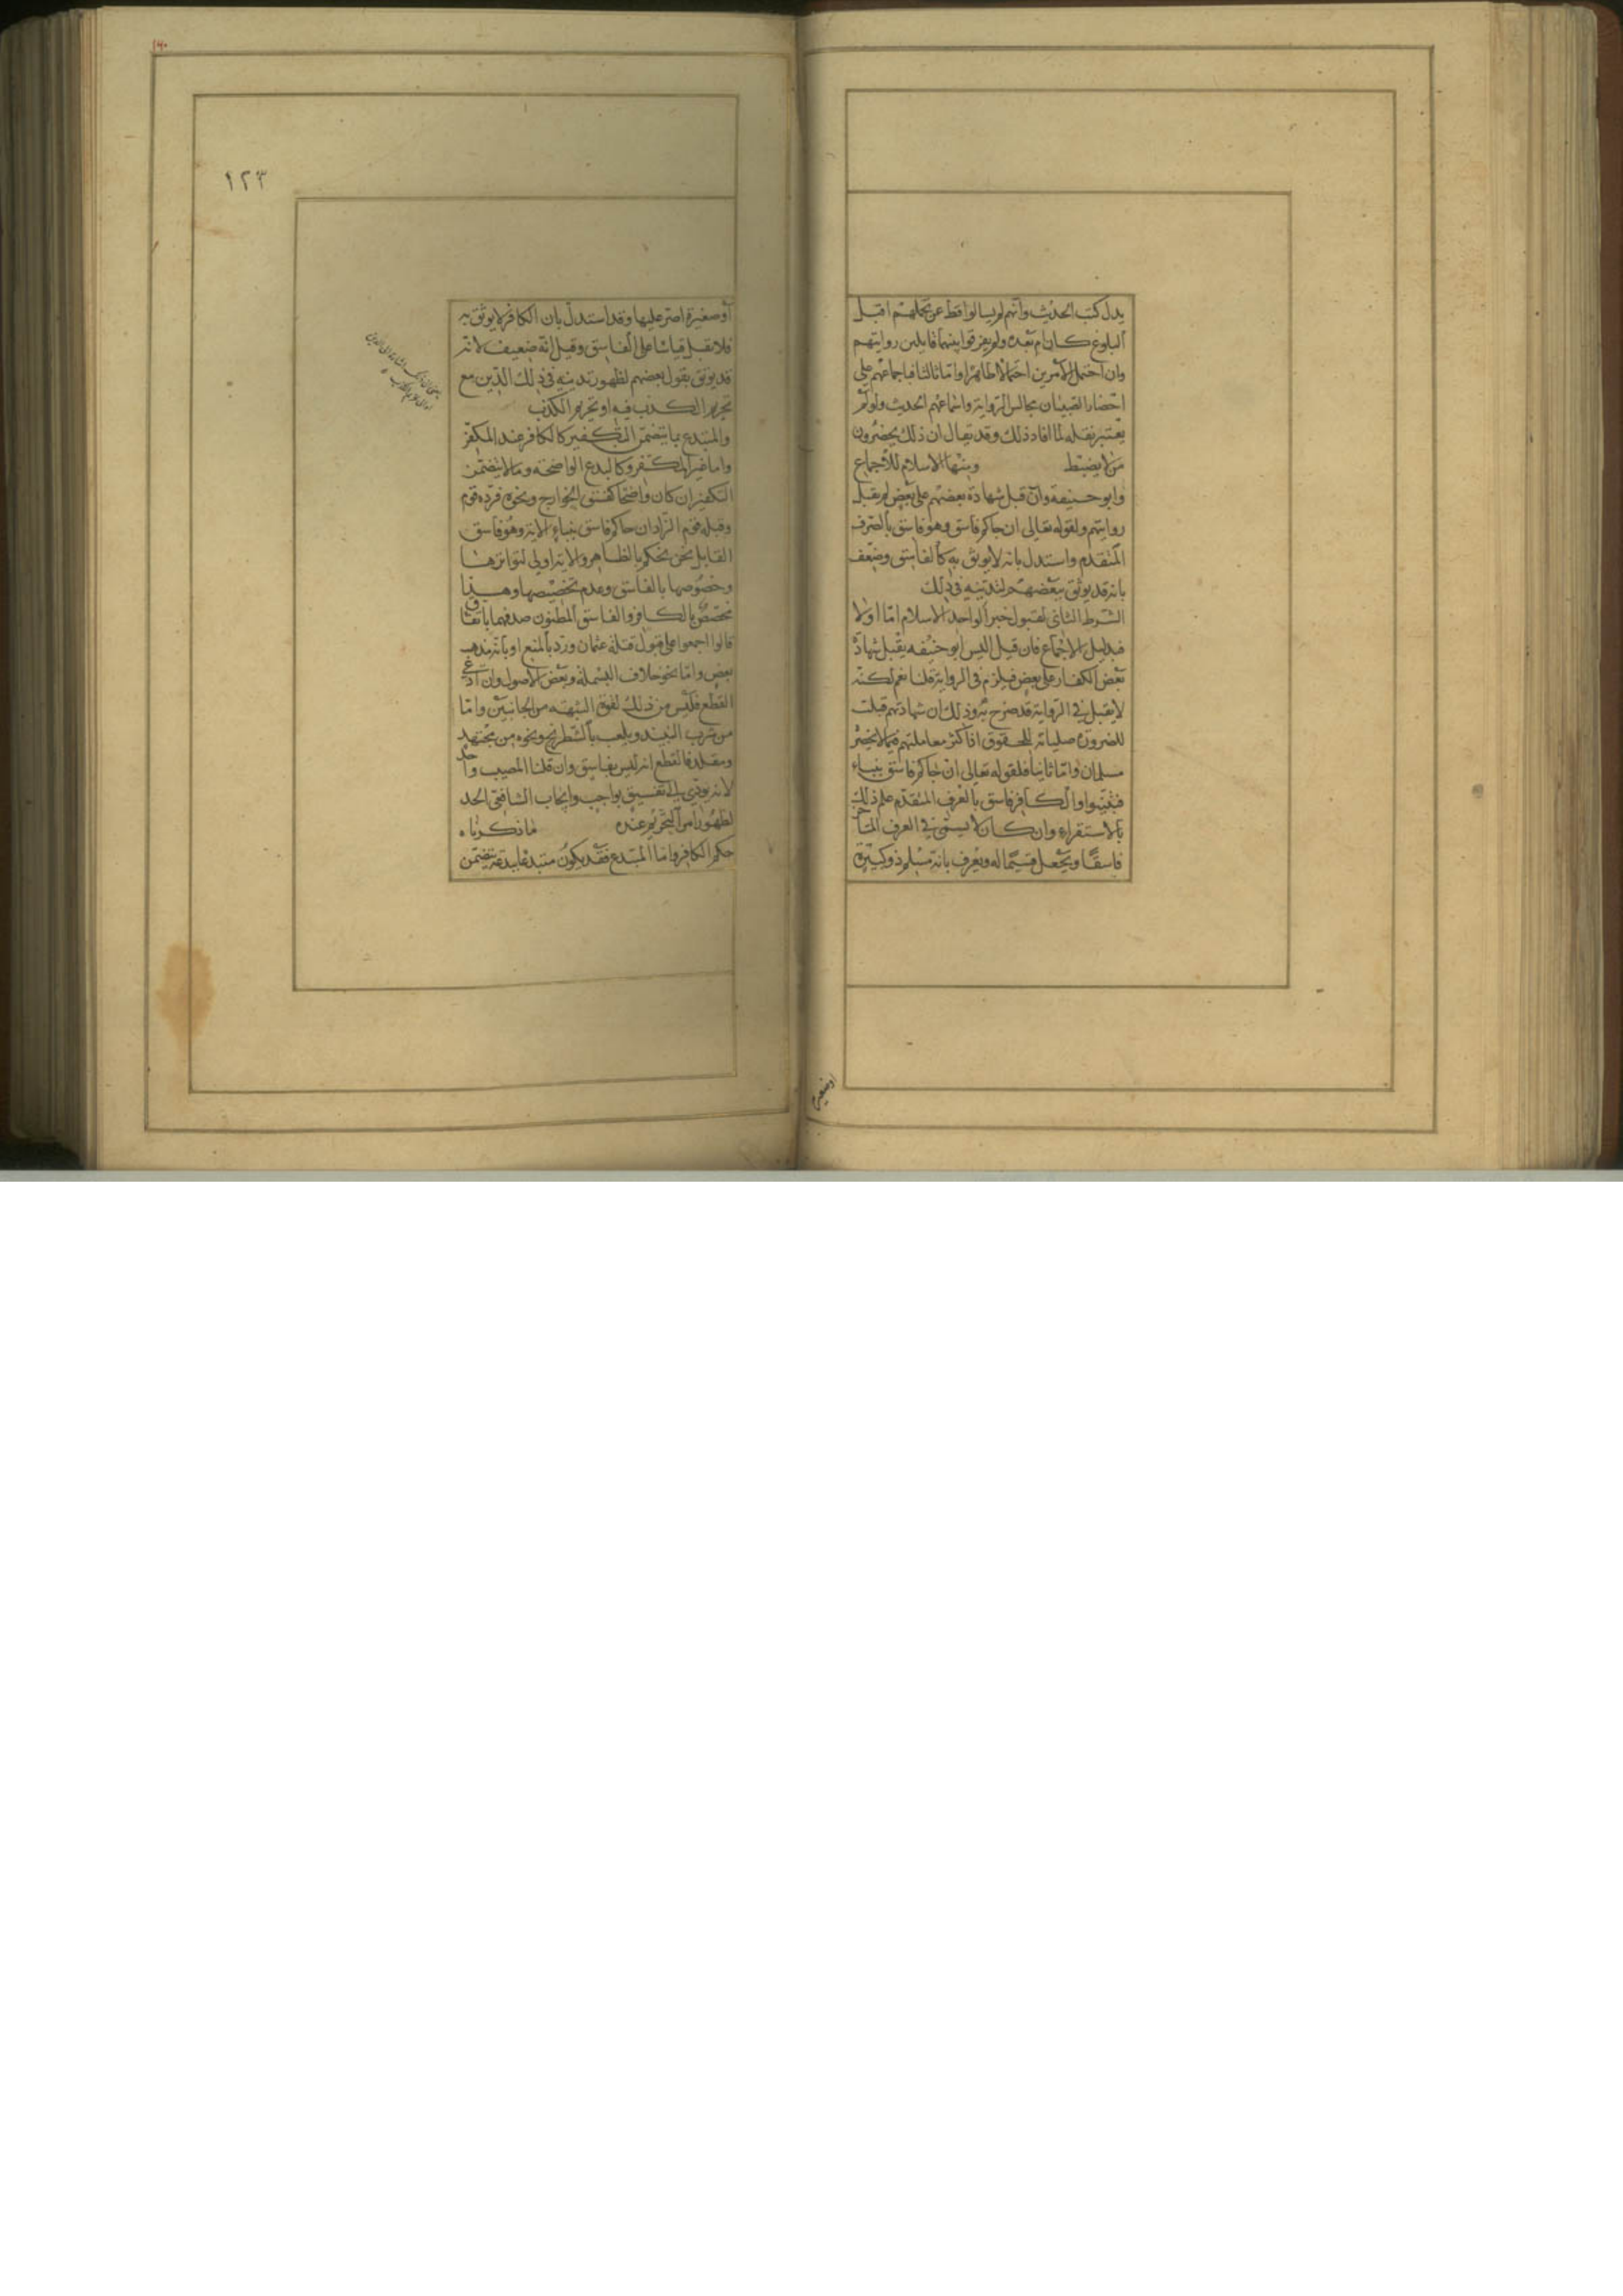 يدل كتب الحديث وانهم لم يسالوا قط عن تحملهم اقبل
البلوغ كان ام بعده ولم يفرقوا بينهما قابلين روايتهم
وان احتمل الامرين احتمالا ظاهرا واما ثالثا فباجماعهم على
احضار الصبيان مجالس الرواية واسماعهم الحديث ولو لم
يعتبر نقله لما افاد ذلك وقد يقال ان ذلك يحضرون
من لا يضبط ومنها الاسلام للاجماع
وابو حنيفة وان قبل شهادة بعضهم على بعض لم يقبل
روايتهم ولقوله تعالى ان جاكم فاسق وهو فاسق بالعرف
المتقدم واستدل بانه لا يوثق به كالفاسق وضعف
بانه قد يوثق ببعضهم لتدينه في ذلك
الشرط الثاني لقبول خبر الواحد الاسلام اما اولا
فبدليل الاجماع فان قيل اليس ابو حنيفه يقبل شهادة
بعض الكفار على بعض فيلزم في الرواية قلنا نعم لكنه
لا يقبل في الرواية قد صرح به وذلك ان شهادتهم قبلت
للضرورة صيانة للحقوق اذ اكثر معاملتهم مما لا يحضر
مسلمان واما ثانيا فلقوله تعالى ان جاكم فاسق بنباء
فتبينوا والكافر فاسق بالعرف المتقدم علم ذلك
بالاستقراء وان كان لا يسمى في العرف المتاخر
فاسقا ويجعل قسيما له ويعرف بانه مسلم ذو كبيرة
او صغيرة
١٢٣
او صغيرة اصر عليها وقد استدل بان الكافر لا يوثق به
فلا يقبل قياسا على الفاسق وقيل انه ضعيف لانه
قد يوثق بقول بعضهم لظهور تدينه في ذلك الدين مع
تحريم الكذب فيه او تحريم الكذب
والمبتدع بما يتضمن التكفير كالكافر عند المكفر
واما غير المكفر فكالبدع الواضحة وما لا يتضمن
التكفير ان كان واضحا كفسق الخوارج ونحوه فرده قوم
وقبله قوم الراد ان جاكم فاسق بنباء الاية وهو فاسق
القابل نحن نحكم بالظاهر والاية اولى لتواترها
وخصوصها بالفاسق وعدم تخصيصها وهذا
مخصص بالكافر والفاسق المظنون صدقهما باتفاق
قالوا اجمعوا على قبول قتلة عثمان ورد بالمنع او بانه مذهب
بعض واما نحو خلاف البسملة وبعض الاصول وان ادعي
القطع فليس من ذلك لقوة الشبهه من الجانبين واما
من شرب النبيذ ويلعب بالشطرنج ونحوه من مجتهد
ومقلد فالقطع انه ليس بفاسق وان قلنا المصيب واحد
لانه يودي الى تفسيق بواجب وايجاب الشافعي الحد
لظهور امر التحريم عنده ما ذكرناه
حكم الكافر واما المبتدع فقد يكون مبتدعا ببدعة يتضمن